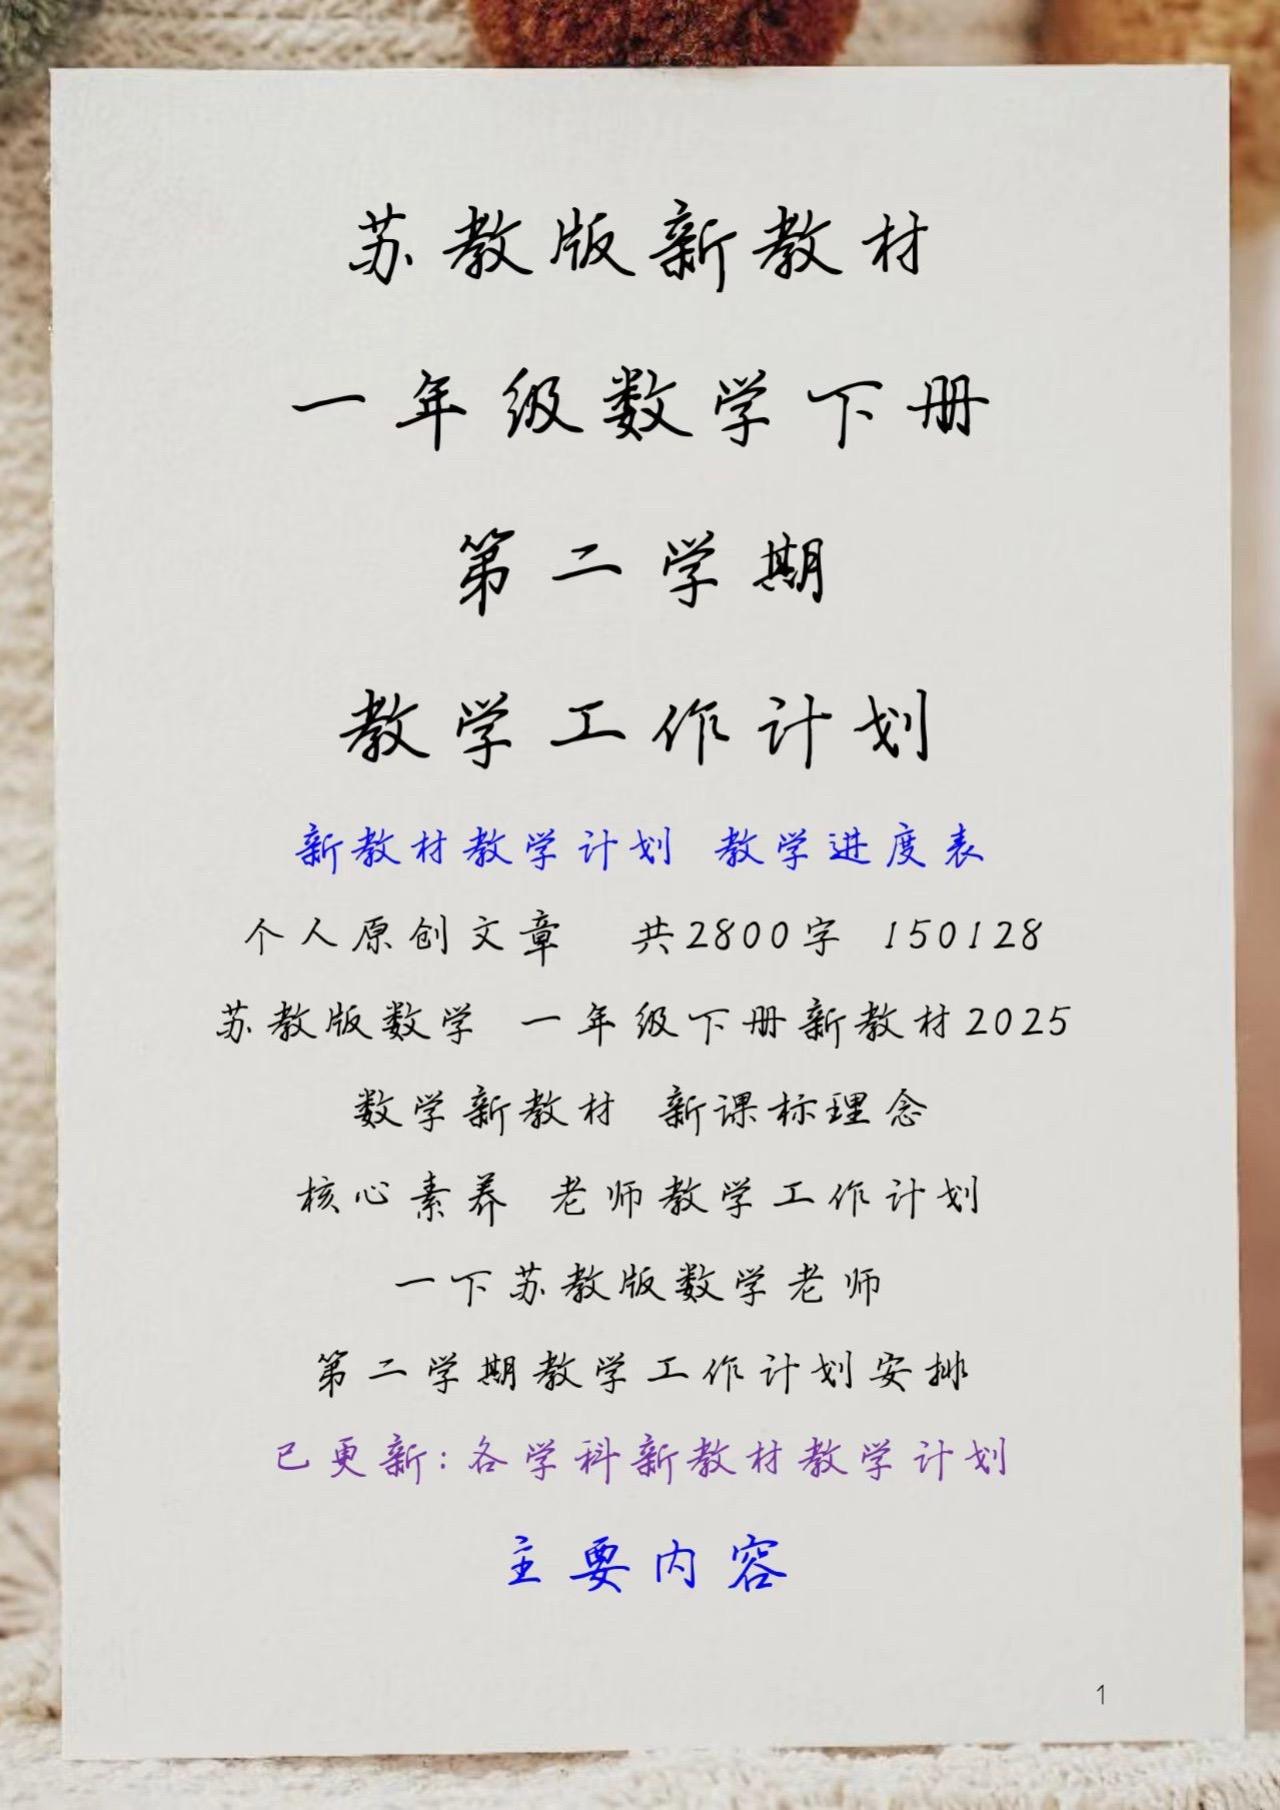 苏教版新教材
一年级数学下册
第二学期
教学工作计划
新教材教学计划 教学进度表
个人原创文章 共2800字 150128
苏教版数学 一年级下册新教材2025
数学新教材 新课标理念
核心素养 老师教学工作计划
一下苏教版数学老师
第二学期教学工作计划安排
已更新:各学科新教材教学计划
主要内容
1